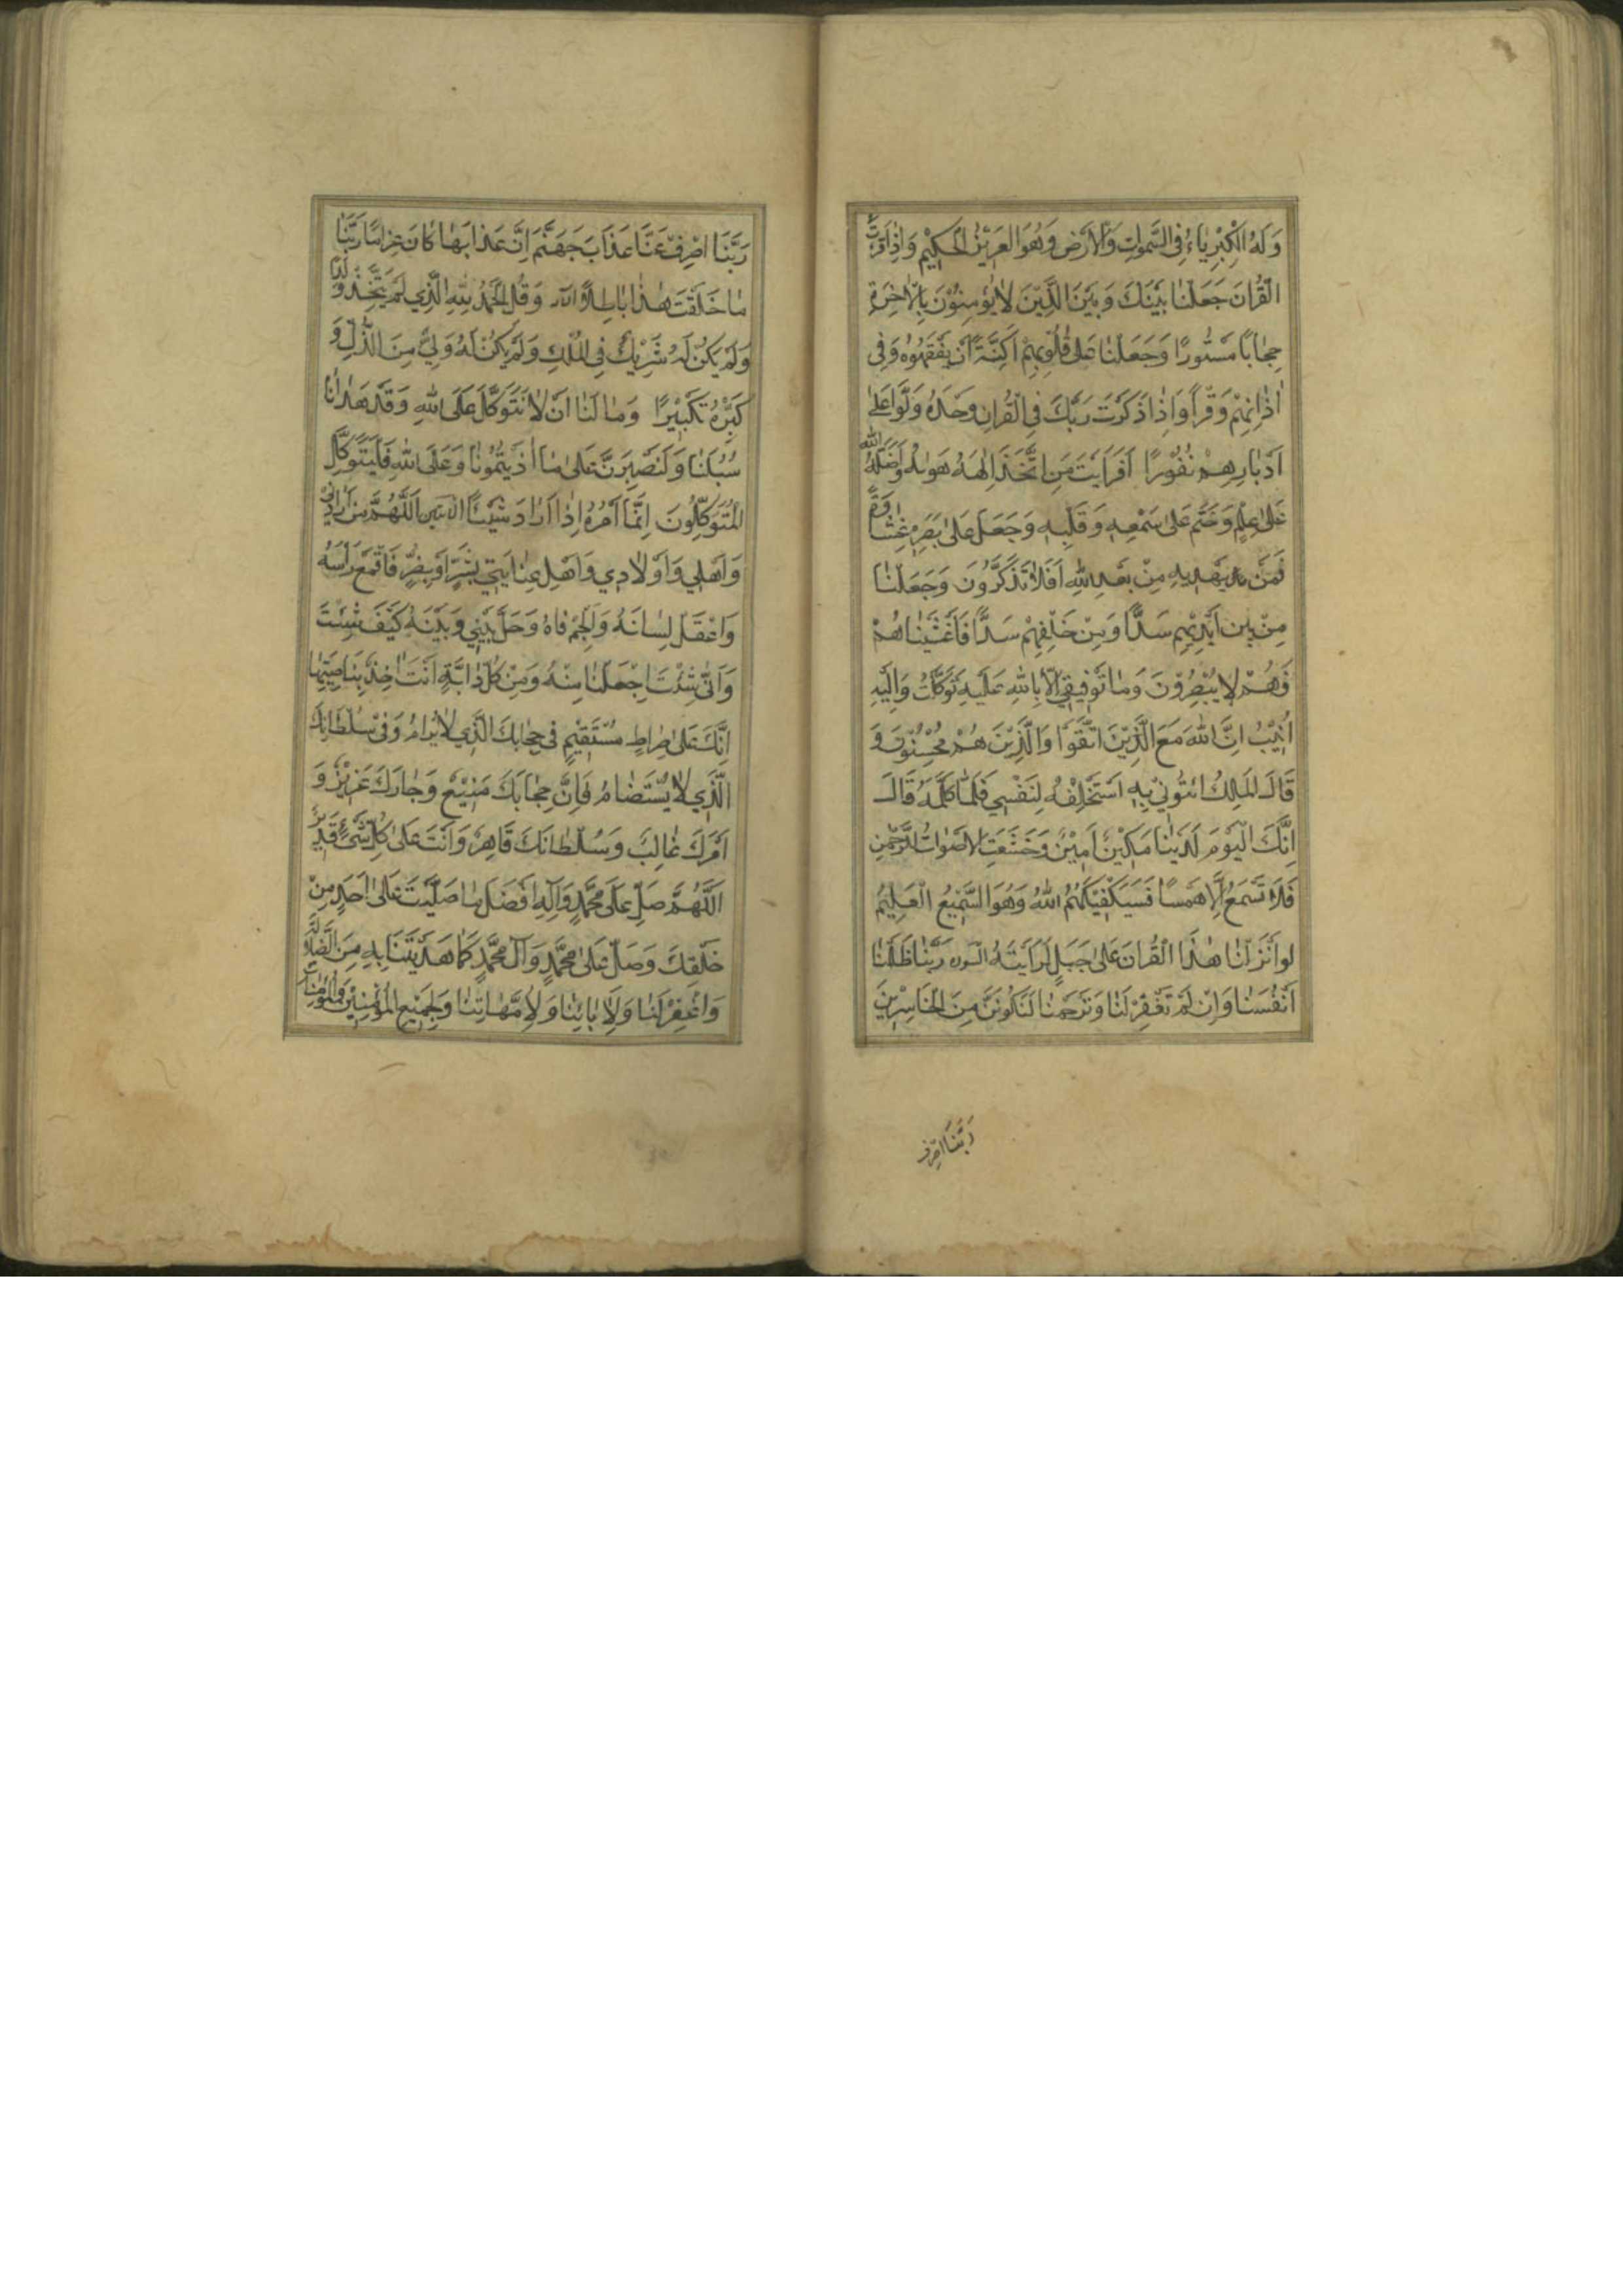 وَلَهُ الْكِبْرِيَاءُ فِي السَّمٰوَاتِ وَالْاَرْضِ وَهُوَ الْعَزِيْزُ الْحَكِيْمُ وَاِذَا قَرَأْتَ
الْقُرْاٰنَ جَعَلْنَا بَيْنَكَ وَبَيْنَ الَّذِيْنَ لَا يُؤْمِنُوْنَ بِالْاٰخِرَةِ
حِجَابًا مَسْتُورًا وَجَعَلْنَا عَلٰى قُلُوْبِهِمْ اَكِنَّةً اَنْ يَفْقَهُوْهُ وَفِي
اٰذَانِهِمْ وَقْرًا وَاِذَا ذَكَرْتَ رَبَّكَ فِي الْقُرْاٰنِ وَحْدَهُ وَلَّوْا عَلٰى
اَدْبَارِهِمْ نُفُوْرًا اَفَرَاَيْتَ مَنِ اتَّخَذَ اِلٰهَهُ هَوٰيهُ وَاَضَلَّهُ اللّٰهُ
عَلٰى عِلْمٍ وَخَتَمَ عَلٰى سَمْعِهِ وَقَلْبِهِ وَجَعَلَ عَلٰى بَصَرِهِ غِشَاوَةً
فَمَنْ يَهْدِيهِ مِنْ بَعْدِ اللّٰهِ اَفَلَا تَذَكَّرُوْنَ وَجَعَلْنَا
مِنْ بَيْنِ اَيْدِيْهِمْ سَدًّا وَمِنْ خَلْفِهِمْ سَدًّا فَاَغْشَيْنَاهُمْ
فَهُمْ لَا يُبْصِرُوْنَ وَمَا تَوْفِيْقِي اِلَّا بِاللّٰهِ عَلَيْهِ تَوَكَّلْتُ وَاِلَيْهِ
اُنِيْبُ اِنَّ اللّٰهَ مَعَ الَّذِيْنَ اتَّقَوْا وَالَّذِيْنَ هُمْ مُحْسِنُوْنَ وَ
قَالَ الْمَلِكُ ائْتُوْنِي بِهِ اَسْتَخْلِصْهُ لِنَفْسِي فَلَمَّا كَلَّمَهُ قَالَ
اِنَّكَ الْيَوْمَ لَدَيْنَا مَكِيْنٌ اَمِيْنٌ وَخَشَعَتِ الْاَصْوَاتُ لِلرَّحْمٰنِ
فَلَا تَسْمَعُ اِلَّا هَمْسًا فَسَيَكْفِيْكَهُمُ اللّٰهُ وَهُوَ السَّمِيْعُ الْعَلِيْمُ
لَوْ اَنْزَلْنَا هٰذَا الْقُرْاٰنَ عَلٰى جَبَلٍ لَرَاَيْتَهُ رَبَّنَا ظَلَمْنَا
اَنْفُسَنَا وَاِنْ لَمْ تَغْفِرْ لَنَا وَتَرْحَمْنَا لَنَكُوْنَنَّ مِنَ الْخَاسِرِيْنَ
رَبَّنَا اصْرِفْ
رَبَّنَا اصْرِفْ عَنَّا عَذَابَ جَهَنَّمَ اِنَّ عَذَابَهَا كَانَ غَرَامًا رَبَّنَا
مَا خَلَقْتَ هٰذَا بَاطِلًا وَقُلِ الْحَمْدُ لِلّٰهِ الَّذِي لَمْ يَتَّخِذْ وَلَدًا
وَلَمْ يَكُنْ لَهُ شَرِيْكٌ فِي الْمُلْكِ وَلَمْ يَكُنْ لَهُ وَلِيٌّ مِنَ الذُّلِّ وَ
كَبِّرْهُ تَكْبِيْرًا وَمَا لَنَا اَنْ لَا نَتَوَكَّلَ عَلَى اللّٰهِ وَقَدْ هَدَانَا
سُبُلَنَا وَلَنَصْبِرَنَّ عَلٰى مَا اٰذَيْتُمُوْنَا وَعَلَى اللّٰهِ فَلْيَتَوَكَّلِ
الْمُتَوَكِّلُوْنَ اِنَّمَا اَمْرُهُ اِذَا اَرَادَ شَيْئًا اَللّٰهُمَّ مَنْ اَرَادَنِي
وَاَهْلِي وَاَوْلَادِي وَاَهْلَ عِنَايَتِي بِشَرٍّ اَوْ بِضُرٍّ فَاقْمَعْ رَأْسَهُ
وَاعْقِلْ لِسَانَهُ وَاَلْجِمْ فَاهُ وَحُلْ بَيْنِي وَبَيْنَهُ كَيْفَ شِئْتَ
وَاَنّٰى شِئْتَ اِجْعَلْنَا مِنْهُ وَمِنْ كُلِّ دَابَّةٍ اَنْتَ اٰخِذٌ بِنَاصِيَتِهَا
اِنَّكَ عَلٰى صِرَاطٍ مُسْتَقِيْمٍ فِي حِجَابِكَ الَّذِي لَا يُرَامُ وَفِي سُلْطَانِكَ
الَّذِي لَا يُسْتَضَامُ فَاِنَّ حِجَابَكَ مَنِيْعٌ وَجَارَكَ عَزِيْزٌ وَ
اَمْرَكَ غَالِبٌ وَسُلْطَانَكَ قَاهِرٌ وَاَنْتَ عَلٰى كُلِّ شَيْءٍ قَدِيْرٌ
اَللّٰهُمَّ صَلِّ عَلٰى مُحَمَّدٍ وَاٰلِهِ اَفْضَلَ مَا صَلَّيْتَ عَلٰى اَحَدٍ مِنْ
خَلْقِكَ وَصَلِّ عَلٰى مُحَمَّدٍ وَاٰلِ مُحَمَّدٍ كَمَا هَدَيْتَنَا بِهِ مِنَ الضَّلَالَةِ
وَاغْفِرْ لَنَا وَلِاٰبَائِنَا وَلِاُمَّهَاتِنَا وَلِجَمِيْعِ الْمُؤْمِنِيْنَ وَالْمُؤْمِنَاتِ